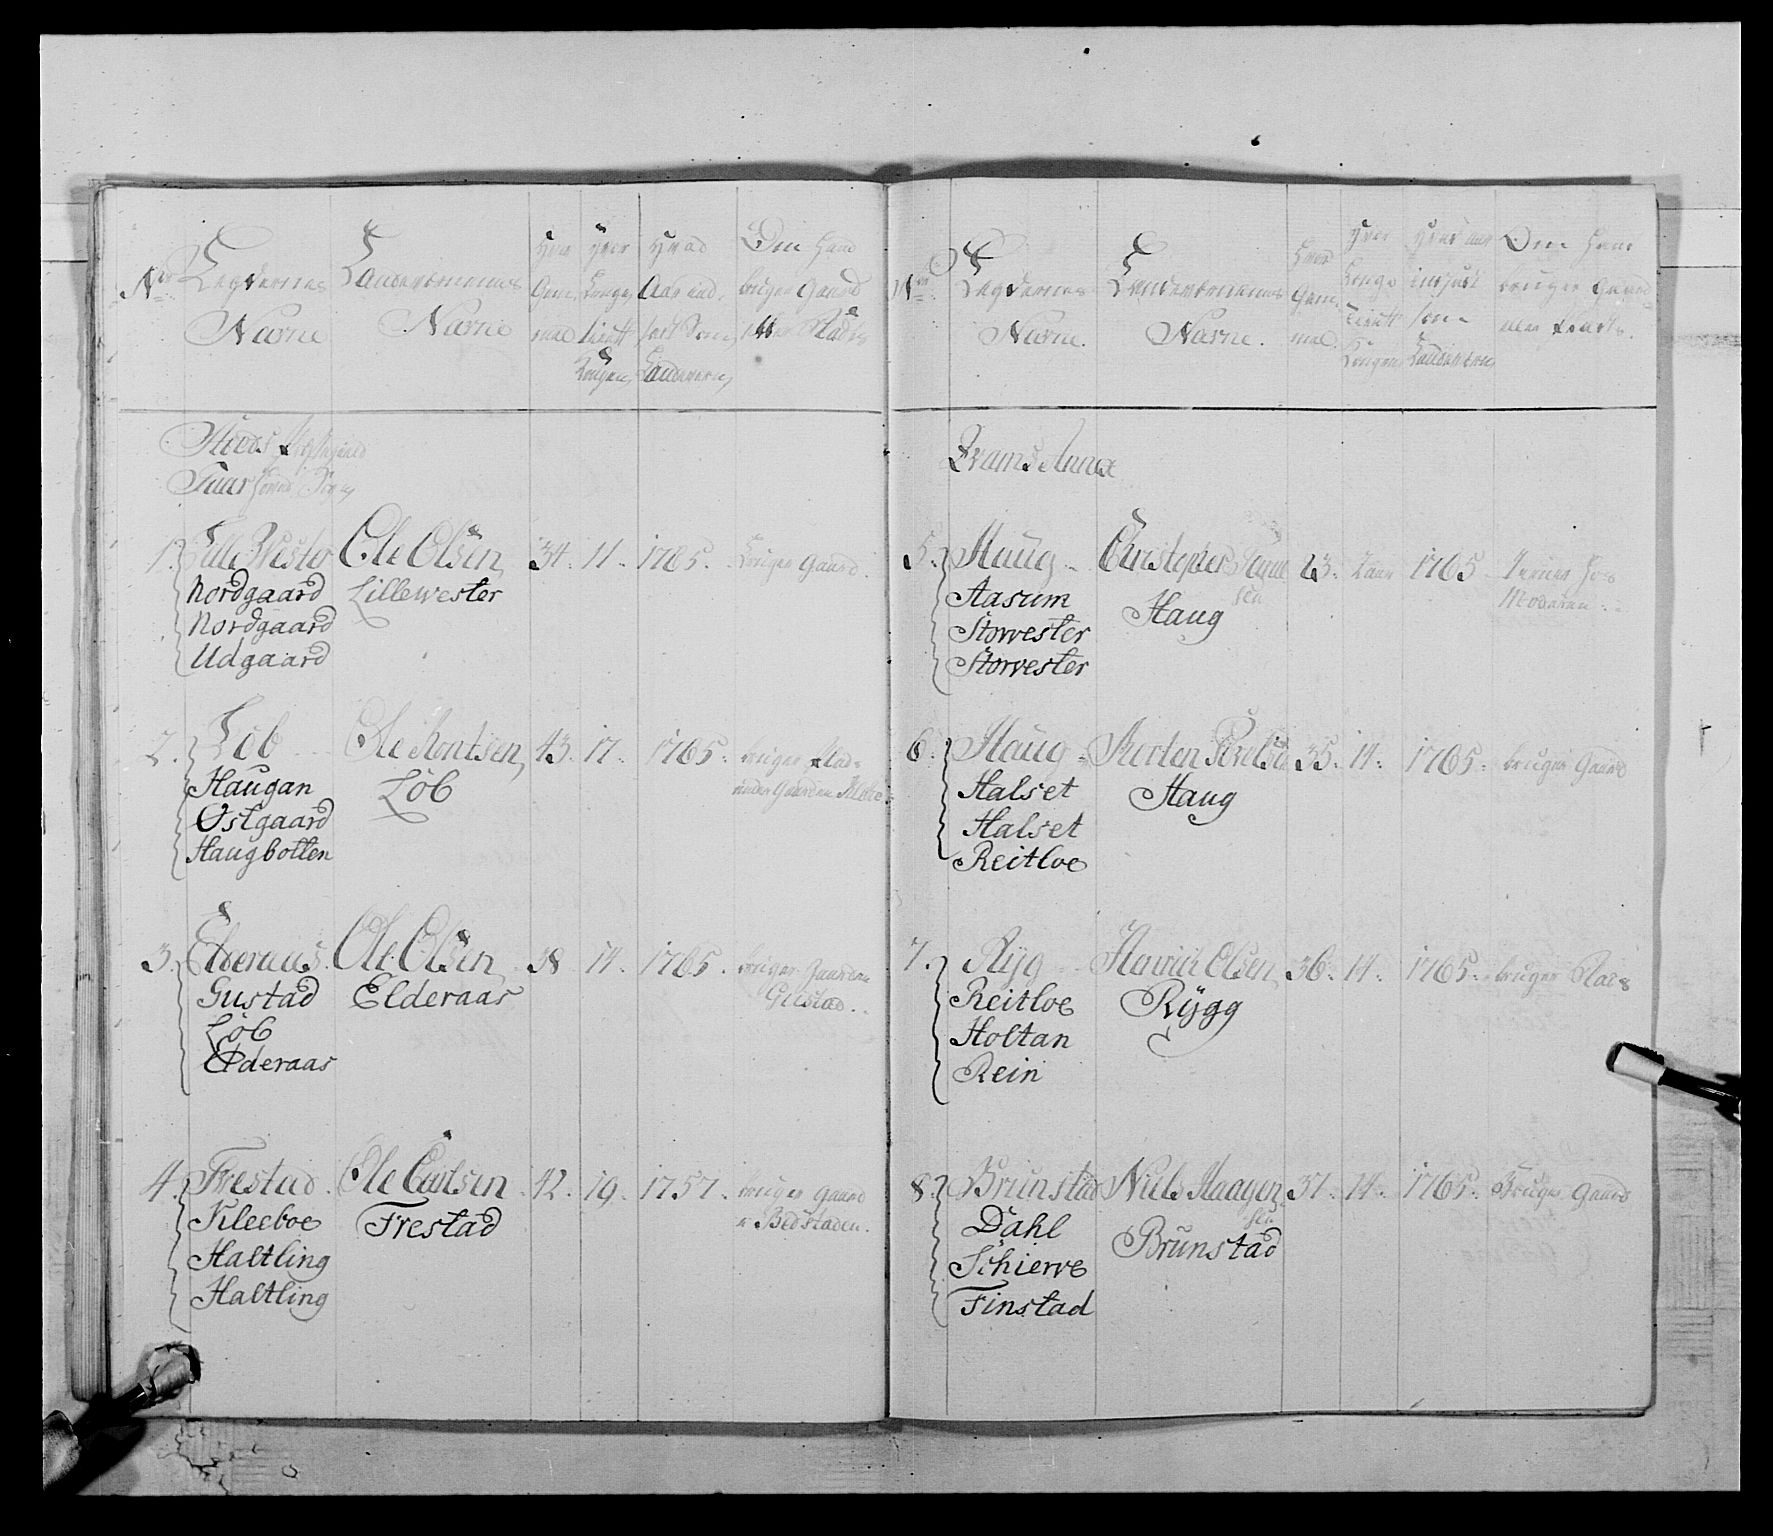 No
Legdernes
Nafne
Landvernenes
Nafne
Hvor
Gam-
mel
Hvor
Længe
tient
Kongen,
Hvad
Aar ind,
sadt som,
Landvern,
Om hand
bruger Gaard
eller Plads
Stods Præstegield
1.
Lille Wester
Nordgaard
Nordgaard
Udgaard
Ole Olsen
Lillewester
34.
11.
1765.
bruger Gaard.
2.
Löb
Haugan
Østgaard
Haugbolten
Ole Arontsen,
Löb
43.
17.
1765.
bruger Plads
under Gaarden
3.
Elderaas.
Gustad
Löb
Elderaas
Ole Olsen
Elderaas
38
14.
1765.
bruger Gaarden
Gustad.
4.
Frestad.
Kleeboe
Haltling
Haltling
Ole Carlsen
Frestad
42.
19.
1757.
bruger Gaard
Bedstaden.
No
Legdernes
Nafne.
Landvernenes
Nafne.
Hvor
Gam-
mel.
Hvor
Længe
tient
Kongen
Hvad aar
indsadt
som
Landvern,
Om hand
bruger Gaard
eller Plads.
Qvams Annex
5.
Haug
Aasum
Storvester
Storvester
Christopher
sen
Haug
23.
2 aar
1765
Tiener hos
Moderen.
6.
Haug
Halset
Halset
Reitloe
Morten
Haug
35.
14.
1765.
bruger Gaard
7.
Ryg
Reitloe
Holtan
Rein
Henrich Olsen
Rÿgg
36.
14.
1765.
bruger Plads
8.
Brunstad
Dahl
Schierve
Finstad
Niels Haagen
sen
Brunstad
37.
14.
1765.
Bruger Gaard